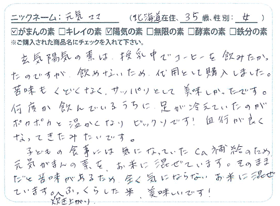 ニックネーム:元気ママ （北海道在住、35歳、性別:女 ）
☑がまんの素 □キレイの素 ☑陽気の素 □無限の素 □酵素の素 □鉄分の素
※ご購入された商品名にチェックを入れて下さい。
玄気陽気の素は、授乳中でコーヒーを飲みたかっ
たのですが 飲めないため、代用として購入しました。
苦味もくどくなく、サッパリとして美味しかったです。
何度か飲んでいるうちに 足が冷えていたのが
ポカポカと温かくなり ビックリです! 血行が良く
なってきたみたいです。
子どもの食事には 気になっていた Ca補給のため
元気がまんの素を、お米に混ぜています。そのまま
だと苦味があるため 全く気にならない お米に混ぜ
ています。ふっくらした米 美味しいです!
炊き上がり